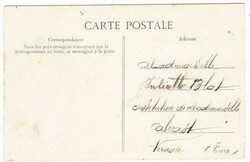 CARTE POSTALE
Correspondance
Tous les pays étrangers n'acceptent pas la
correspondance au recto, se renseigner à la poste.
Adresse
Mademoiselle
Juliette Blot
Institution de Mademoiselle
Vernon (Eure)